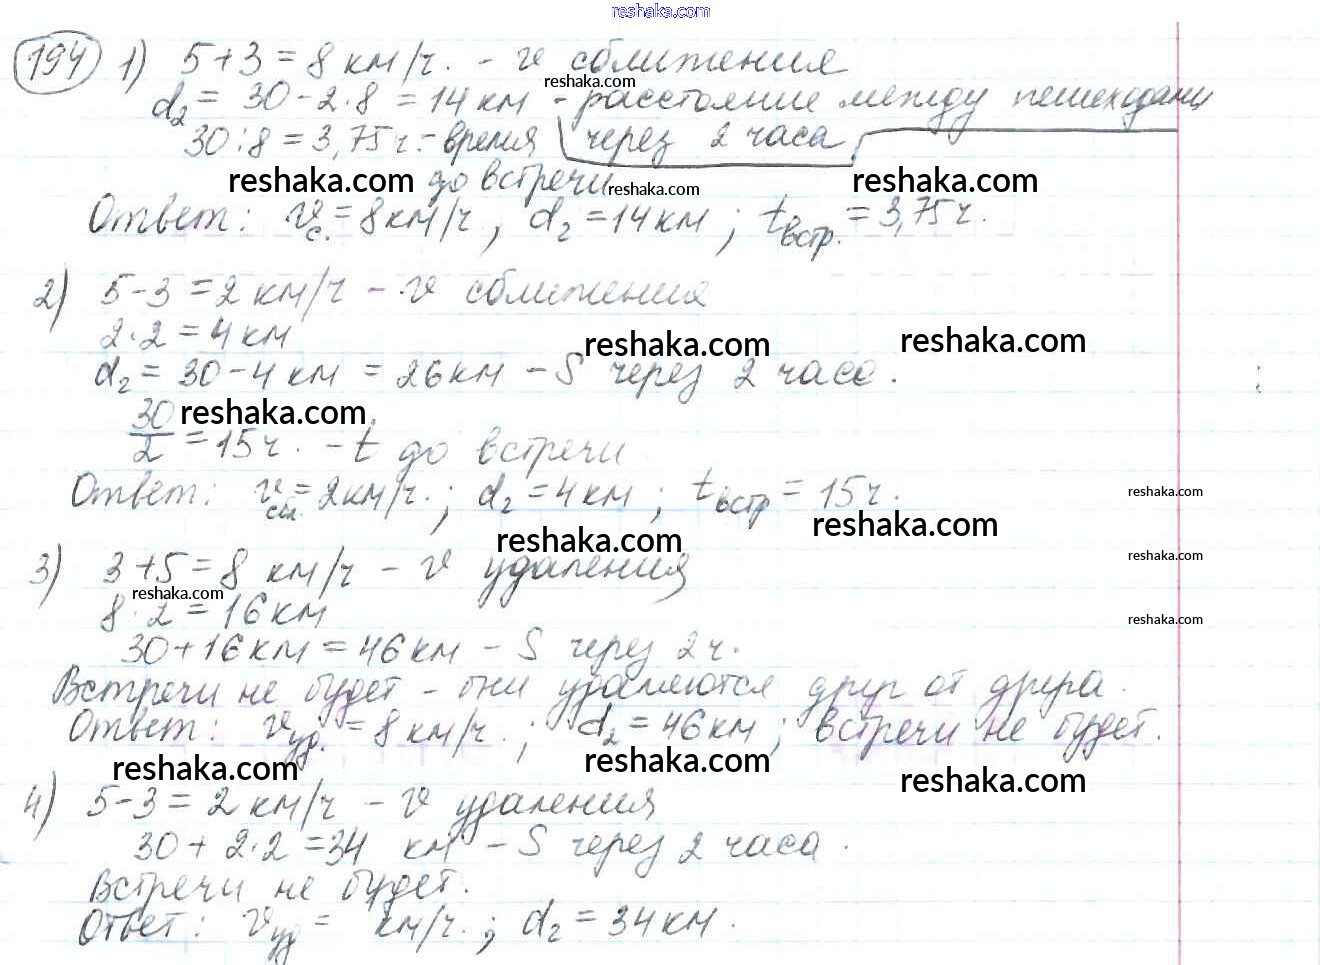 reshaka.com
194 1) 5+3=8 км/ч. - v сближения
reshaka.com
d₂ = 30-2·8 = 14 км - расстояние между пешеходами
30:8=3,75ч.-время через 2 часа
reshaka.com до встречи reshaka.com reshaka.com
Ответ: vс.=8км/ч, d₂=14км; tвстр.=3,75ч.
2) 5-3=2 км/ч - v сближения
2·2=4 км
reshaka.com reshaka.com
d₂ = 30-4 км = 26км - S через 2 часа.
30/2 = 15ч. - t до встречи
reshaka.com
Ответ: vсбл.=2км/ч.; d₂=4км; tвстр=15ч.
reshaka.com
reshaka.com reshaka.com
3) 3+5=8 км/ч - v удаления
reshaka.com
reshaka.com
8·2=16км
reshaka.com
30+16км=46км - S через 2ч.
Встречи не будет - они удаляются друг от друга.
Ответ: vуд.=8км/ч.; d₂=46км; встречи не будет.
reshaka.com reshaka.com reshaka.com
4) 5-3=2 км/ч - v удаления
30+2·2=34 км - S через 2 часа.
Встречи не будет.
Ответ: vуд= км/ч.; d₂=34км.